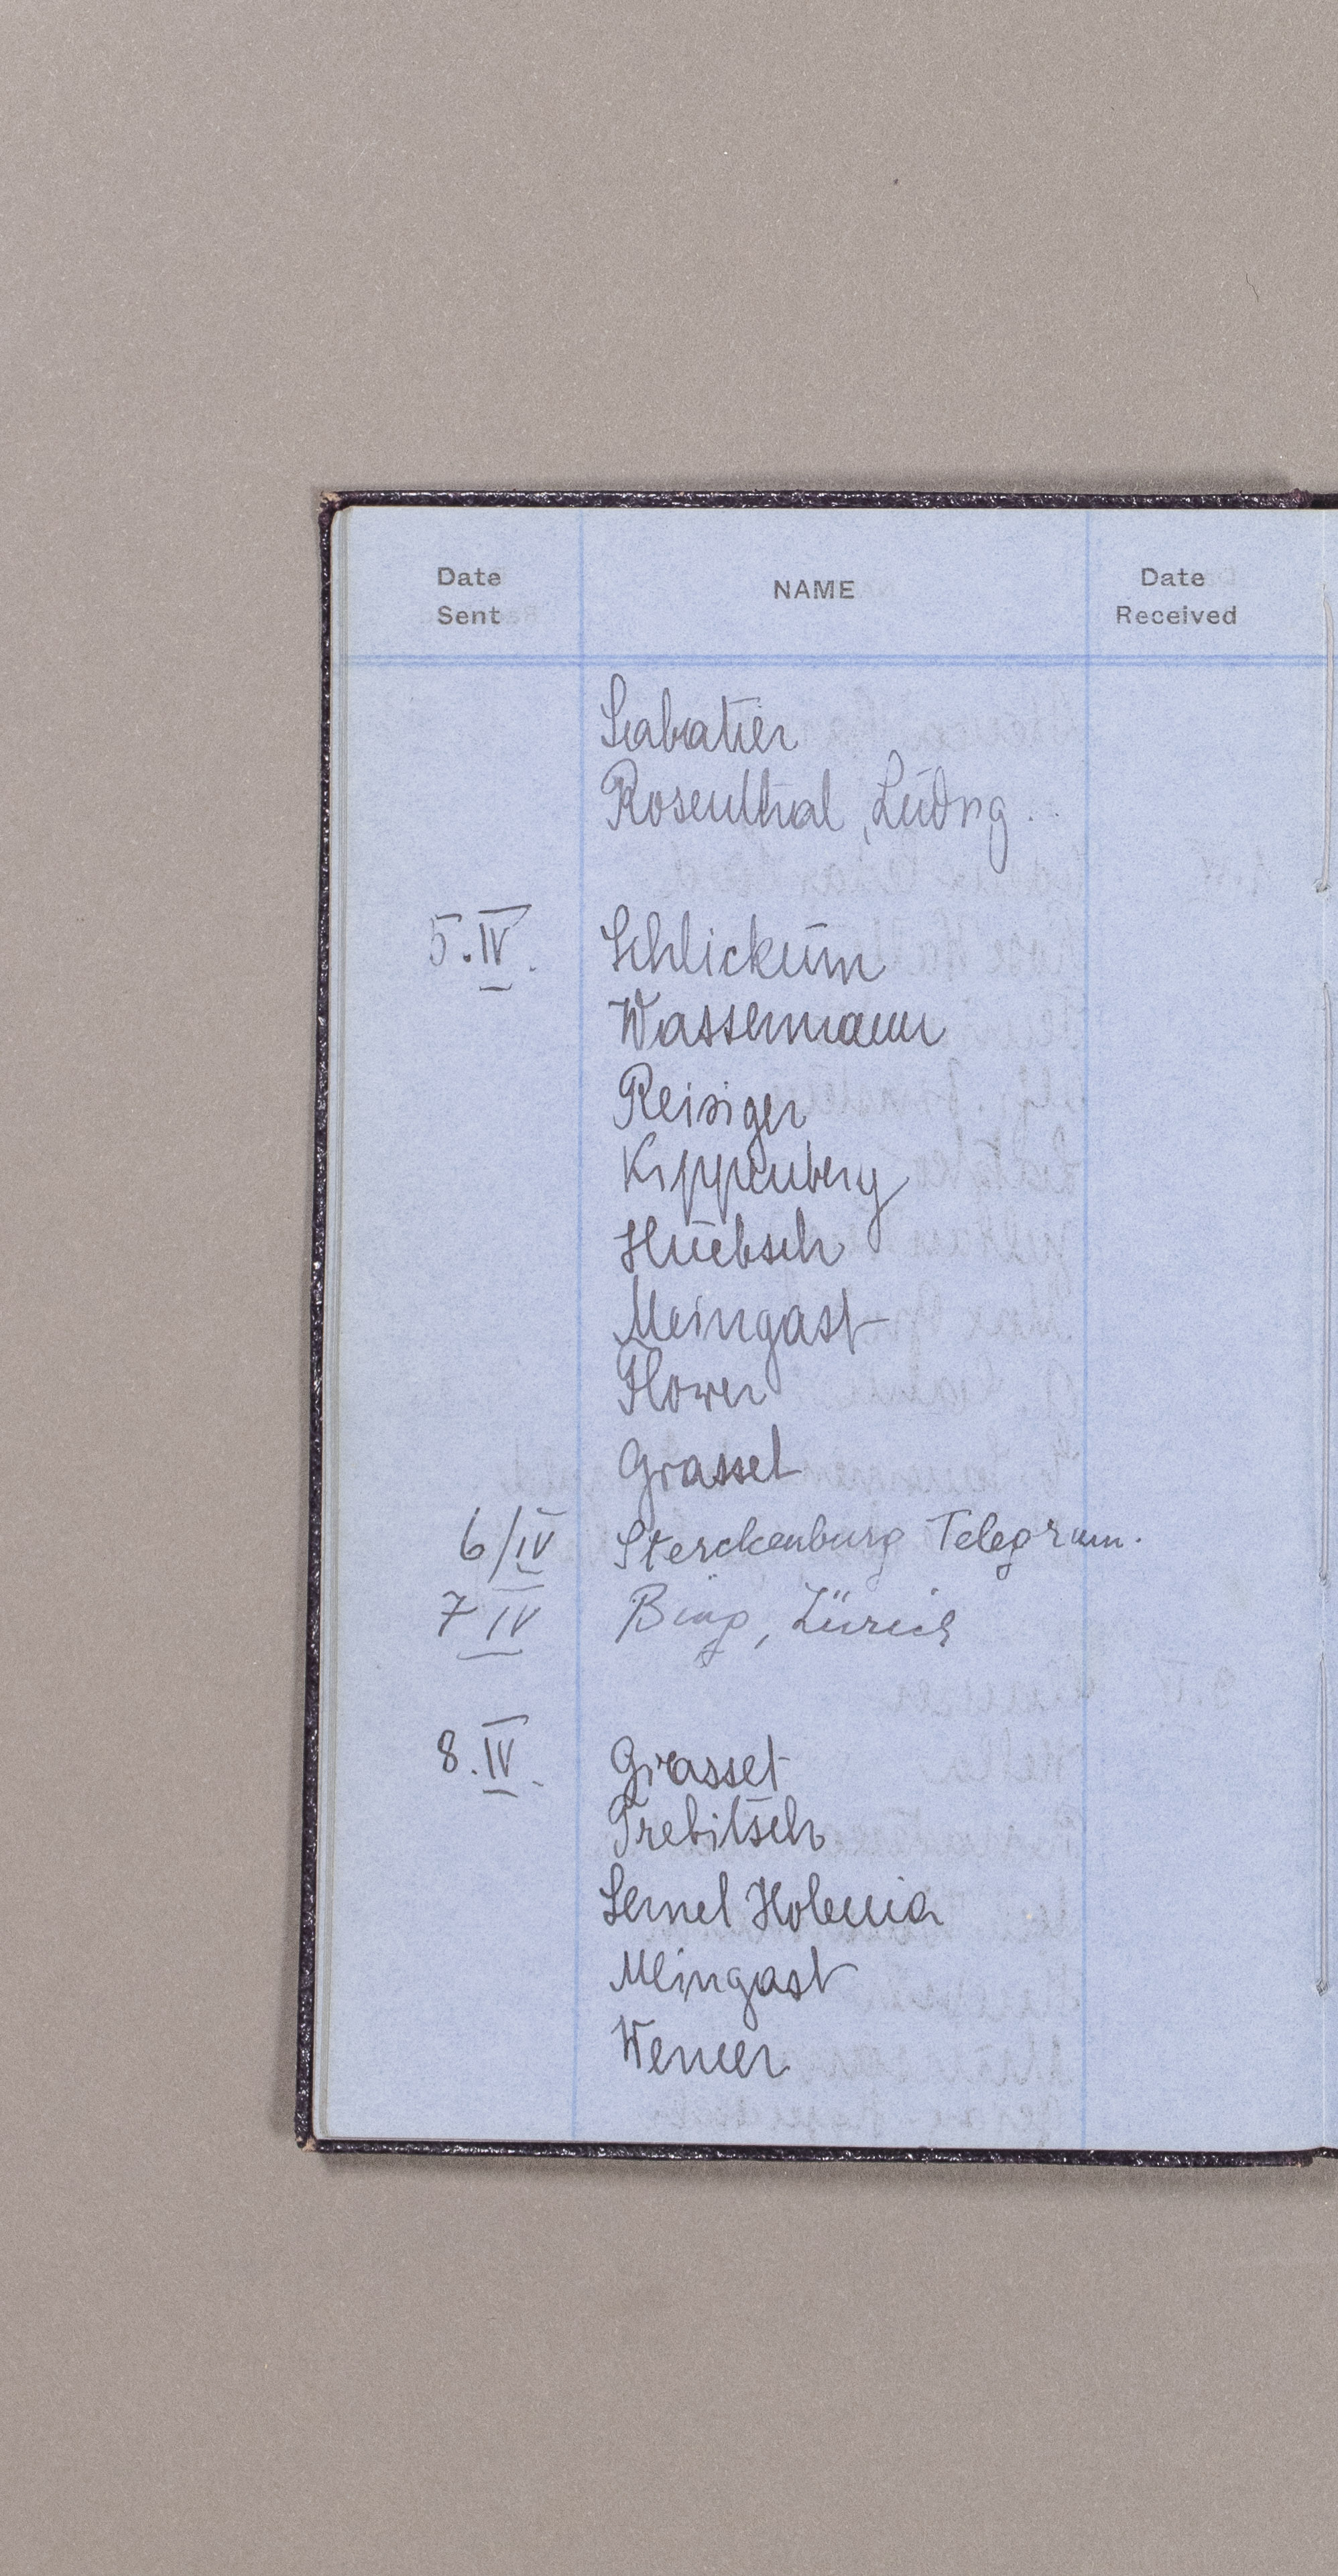 Date Sent NAME Date Received
Sabatier
Rosenthal, Ludwig.
5.IV. Schlickum
Wassermann
Reisiger
Kippenberg
Huebsch
Meingast
Flower
Grasset
6/IV Sterckenburg Telegram.
7 IV Bing, Zürich
8.IV. Grasset
Trebitsch
Lernet Holenia
Meingast
Werner